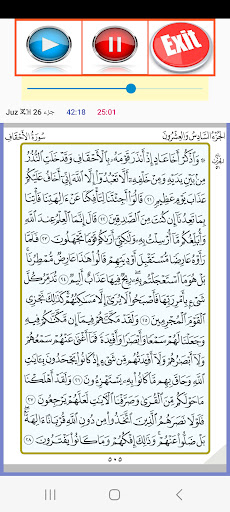 Exit
Juz جزء 26 42:18 25:01
الجزء السادس والعشرون
سورة الأحقاف
۞ وَٱذْكُرْ أَخَا عَادٍ إِذْ أَنذَرَ قَوْمَهُۥ بِٱلْأَحْقَافِ وَقَدْ خَلَتِ ٱلنُّذُرُ
مِنۢ بَيْنِ يَدَيْهِ وَمِنْ خَلْفِهِۦٓ أَلَّا تَعْبُدُوٓا۟ إِلَّا ٱللَّهَ إِنِّىٓ أَخَافُ عَلَيْكُمْ
عَذَابَ يَوْمٍ عَظِيمٍ ٢١ قَالُوٓا۟ أَجِئْتَنَا لِتَأْفِكَنَا عَنْ ءَالِهَتِنَا فَأْتِنَا
بِمَا تَعِدُنَآ إِن كُنتَ مِنَ ٱلصَّٰدِقِينَ ٢٢ قَالَ إِنَّمَا ٱلْعِلْمُ عِندَ ٱللَّهِ
وَأُبَلِّغُكُم مَّآ أُرْسِلْتُ بِهِۦ وَلَٰكِنِّىٓ أَرَىٰكُمْ قَوْمًا تَجْهَلُونَ ٢٣ فَلَمَّا
رَأَوْهُ عَارِضًا مُّسْتَقْبِلَ أَوْدِيَتِهِمْ قَالُوا۟ هَٰذَا عَارِضٌ مُّمْطِرُنَا بَلْ
هُوَ مَا ٱسْتَعْجَلْتُم بِهِۦ رِيحٌ فِيهَا عَذَابٌ أَلِيمٌ ٢٤ تُدَمِّرُ كُلَّ
شَىْءٍۭ بِأَمْرِ رَبِّهَا فَأَصْبَحُوا۟ لَا يُرَىٰٓ إِلَّا مَسَٰكِنُهُمْ كَذَٰلِكَ نَجْزِى
ٱلْقَوْمَ ٱلْمُجْرِمِينَ ٢٥ وَلَقَدْ مَكَّنَّٰهُمْ فِيمَآ إِن مَّكَّنَّٰكُمْ فِيهِ
وَجَعَلْنَا لَهُمْ سَمْعًا وَأَبْصَٰرًا وَأَفْـِٔدَةً فَمَآ أَغْنَىٰ عَنْهُمْ سَمْعُهُمْ
وَلَآ أَبْصَٰرُهُمْ وَلَآ أَفْـِٔدَتُهُم مِّن شَىْءٍ إِذْ كَانُوا۟ يَجْحَدُونَ بِـَٔايَٰتِ
ٱللَّهِ وَحَاقَ بِهِم مَّا كَانُوا۟ بِهِۦ يَسْتَهْزِءُونَ ٢٦ وَلَقَدْ أَهْلَكْنَا
مَا حَوْلَكُم مِّنَ ٱلْقُرَىٰ وَصَرَّفْنَا ٱلْءَايَٰتِ لَعَلَّهُمْ يَرْجِعُونَ ٢٧
فَلَوْلَا نَصَرَهُمُ ٱلَّذِينَ ٱتَّخَذُوا۟ مِن دُونِ ٱللَّهِ قُرْبَانًا ءَالِهَةًۢ
بَلْ ضَلُّوا۟ عَنْهُمْ وَذَٰلِكَ إِفْكُهُمْ وَمَا كَانُوا۟ يَفْتَرُونَ ٢٨
٥٠٥